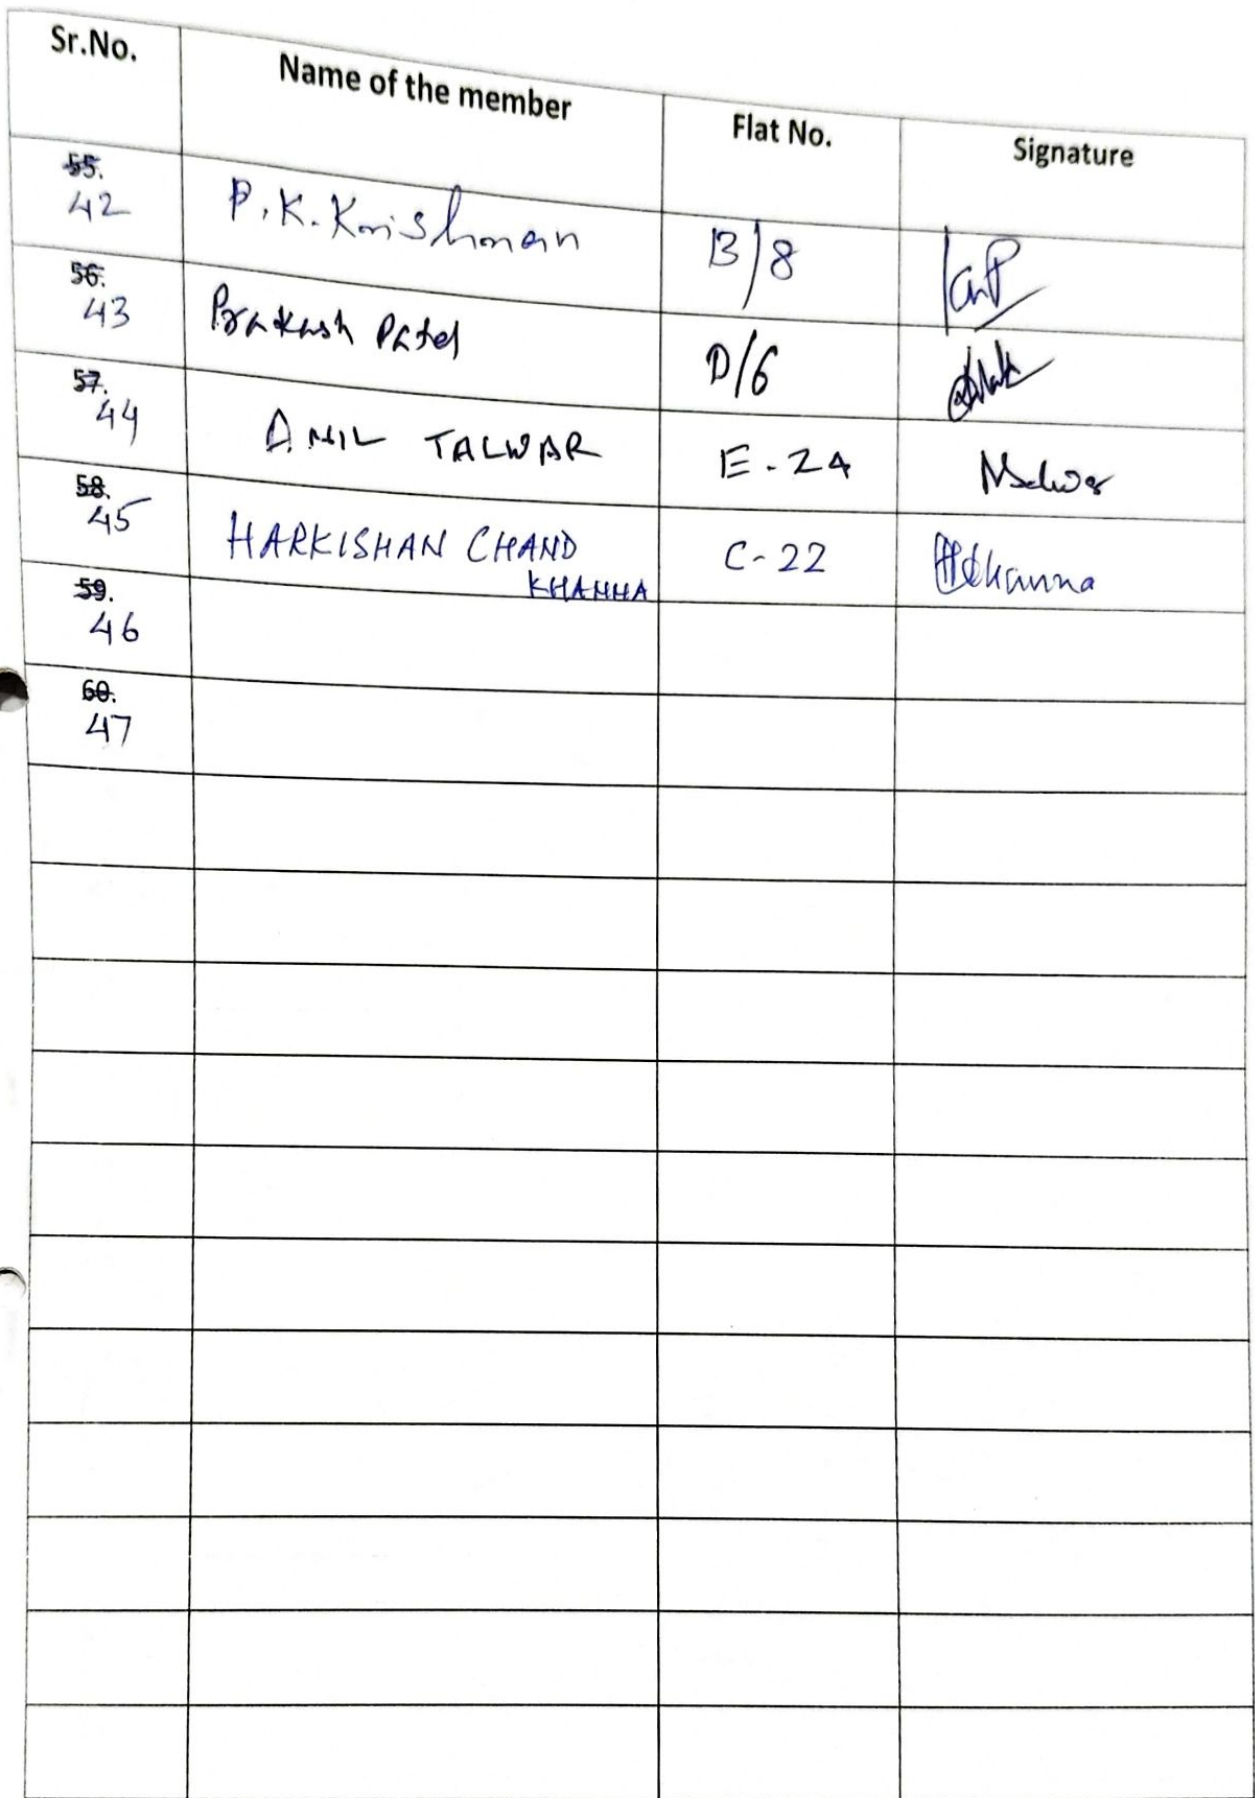 Sr.No. Name of the member Flat No. Signature
55.
42 P.K.Krishnan B/8
56.
43 Prakash Patel D/6
57.
44 ANIL TALWAR E-24
58.
45 HARKISHAN CHAND C-22 HCKhanna
KHANNA
59.
46
60.
47